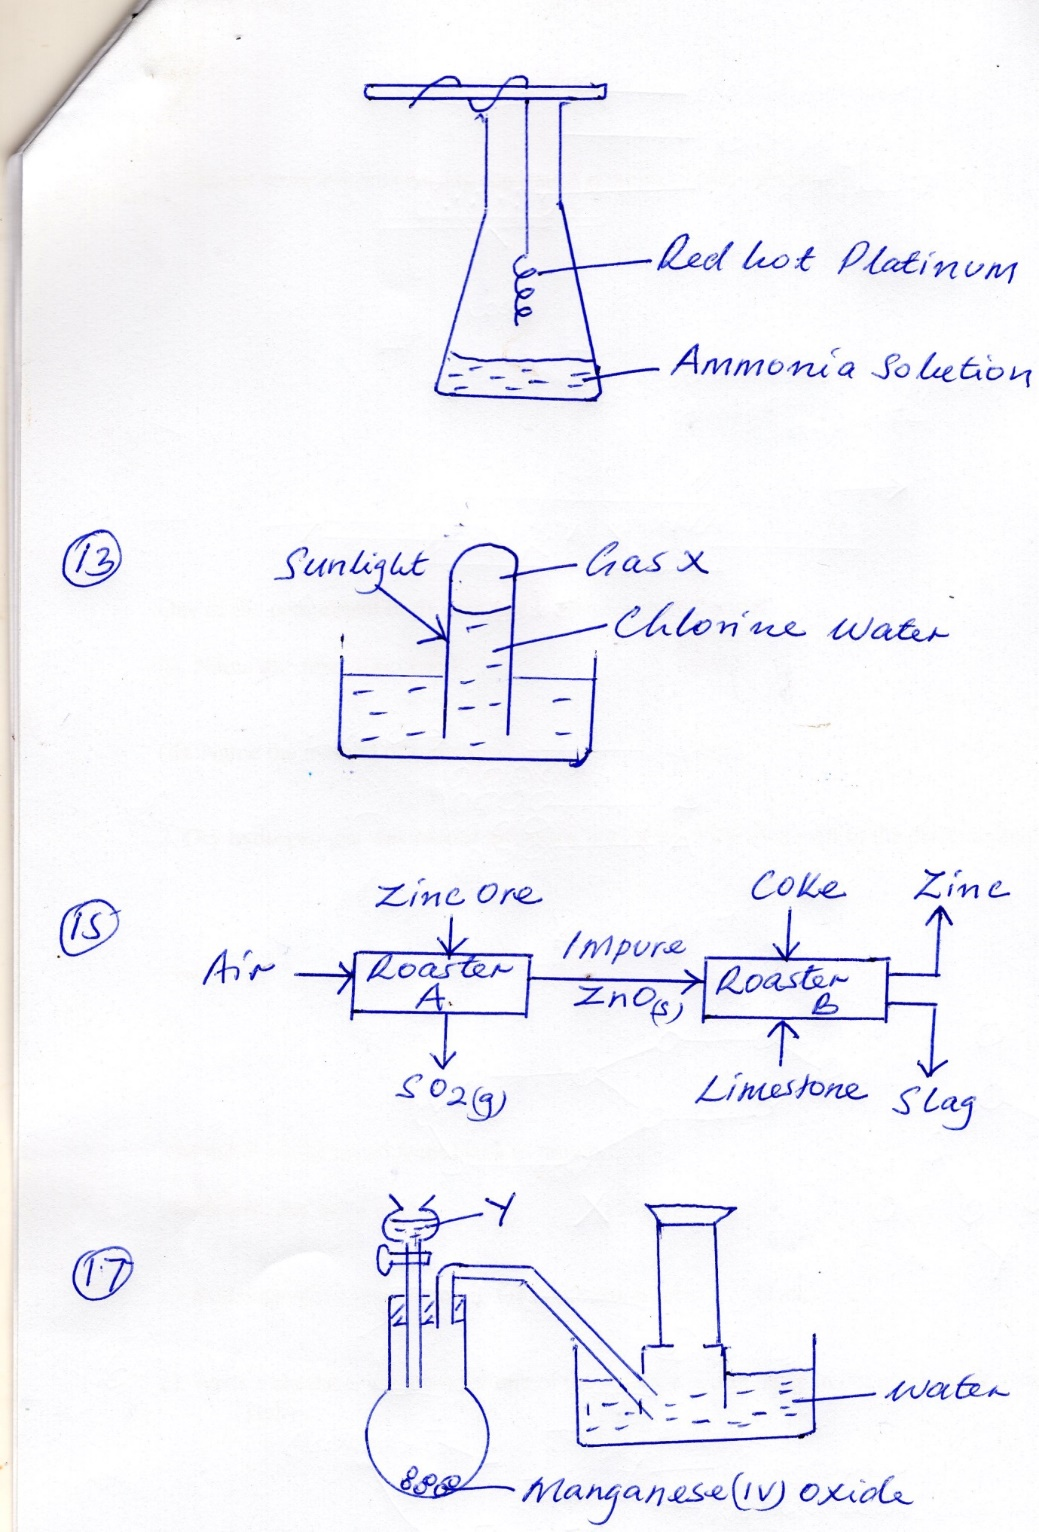 Red hot Platinum
Ammonia Solution
13
Sunlight
Gas X
Chlorine Water
15
Zinc Ore
Coke
Zinc
Air
Roaster
A
Impure
ZnO(s)
Roaster
B
SO2(g)
Limestone
Slag
17
Y
Water
Manganese(IV) oxide